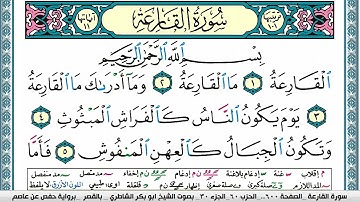 سُورَةُ القَارِعَةِ
بِسْمِ اللَّهِ الرَّحْمَٰنِ الرَّحِيمِ
الْقَارِعَةُ ١ مَا الْقَارِعَةُ ٢ وَمَا أَدْرَىٰكَ مَا الْقَارِعَةُ
٣ يَوْمَ يَكُونُ النَّاسُ كَالْفَرَاشِ الْمَبْثُوثِ ٤
وَتَكُونُ الْجِبَالُ كَالْعِهْنِ الْمَنفُوشِ ٥ فَأَمَّا
سورة القارعة الصفحة ٦٠٠ الحزب ٦٠ الجزء ٣٠ بصوت الشيخ أبو بكر الشاطري بالقصر برواية حفص عن عاصم